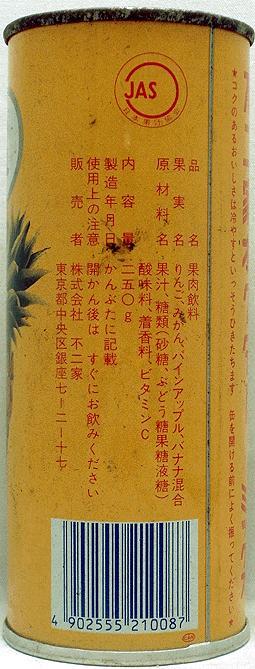 JAS
日本果汁協会
品名 果肉飲料
果実名 りんご、みかん、パインアップル、バナナ混合
原材料名 果汁、糖類(砂糖、ぶどう糖果糖液糖)
酸味料、着香料、ビタミンC
内容量 二五〇g
製造年月日 かんぶたに記載
使用上の注意 開かん後は、すぐにお飲みください
販売者 株式会社 不二家
東京都中央区銀座七-二-十七
★コクのあるおいしさは冷やすといっそうひきたちます 缶を開ける前によく振ってください★
4 902555 210087